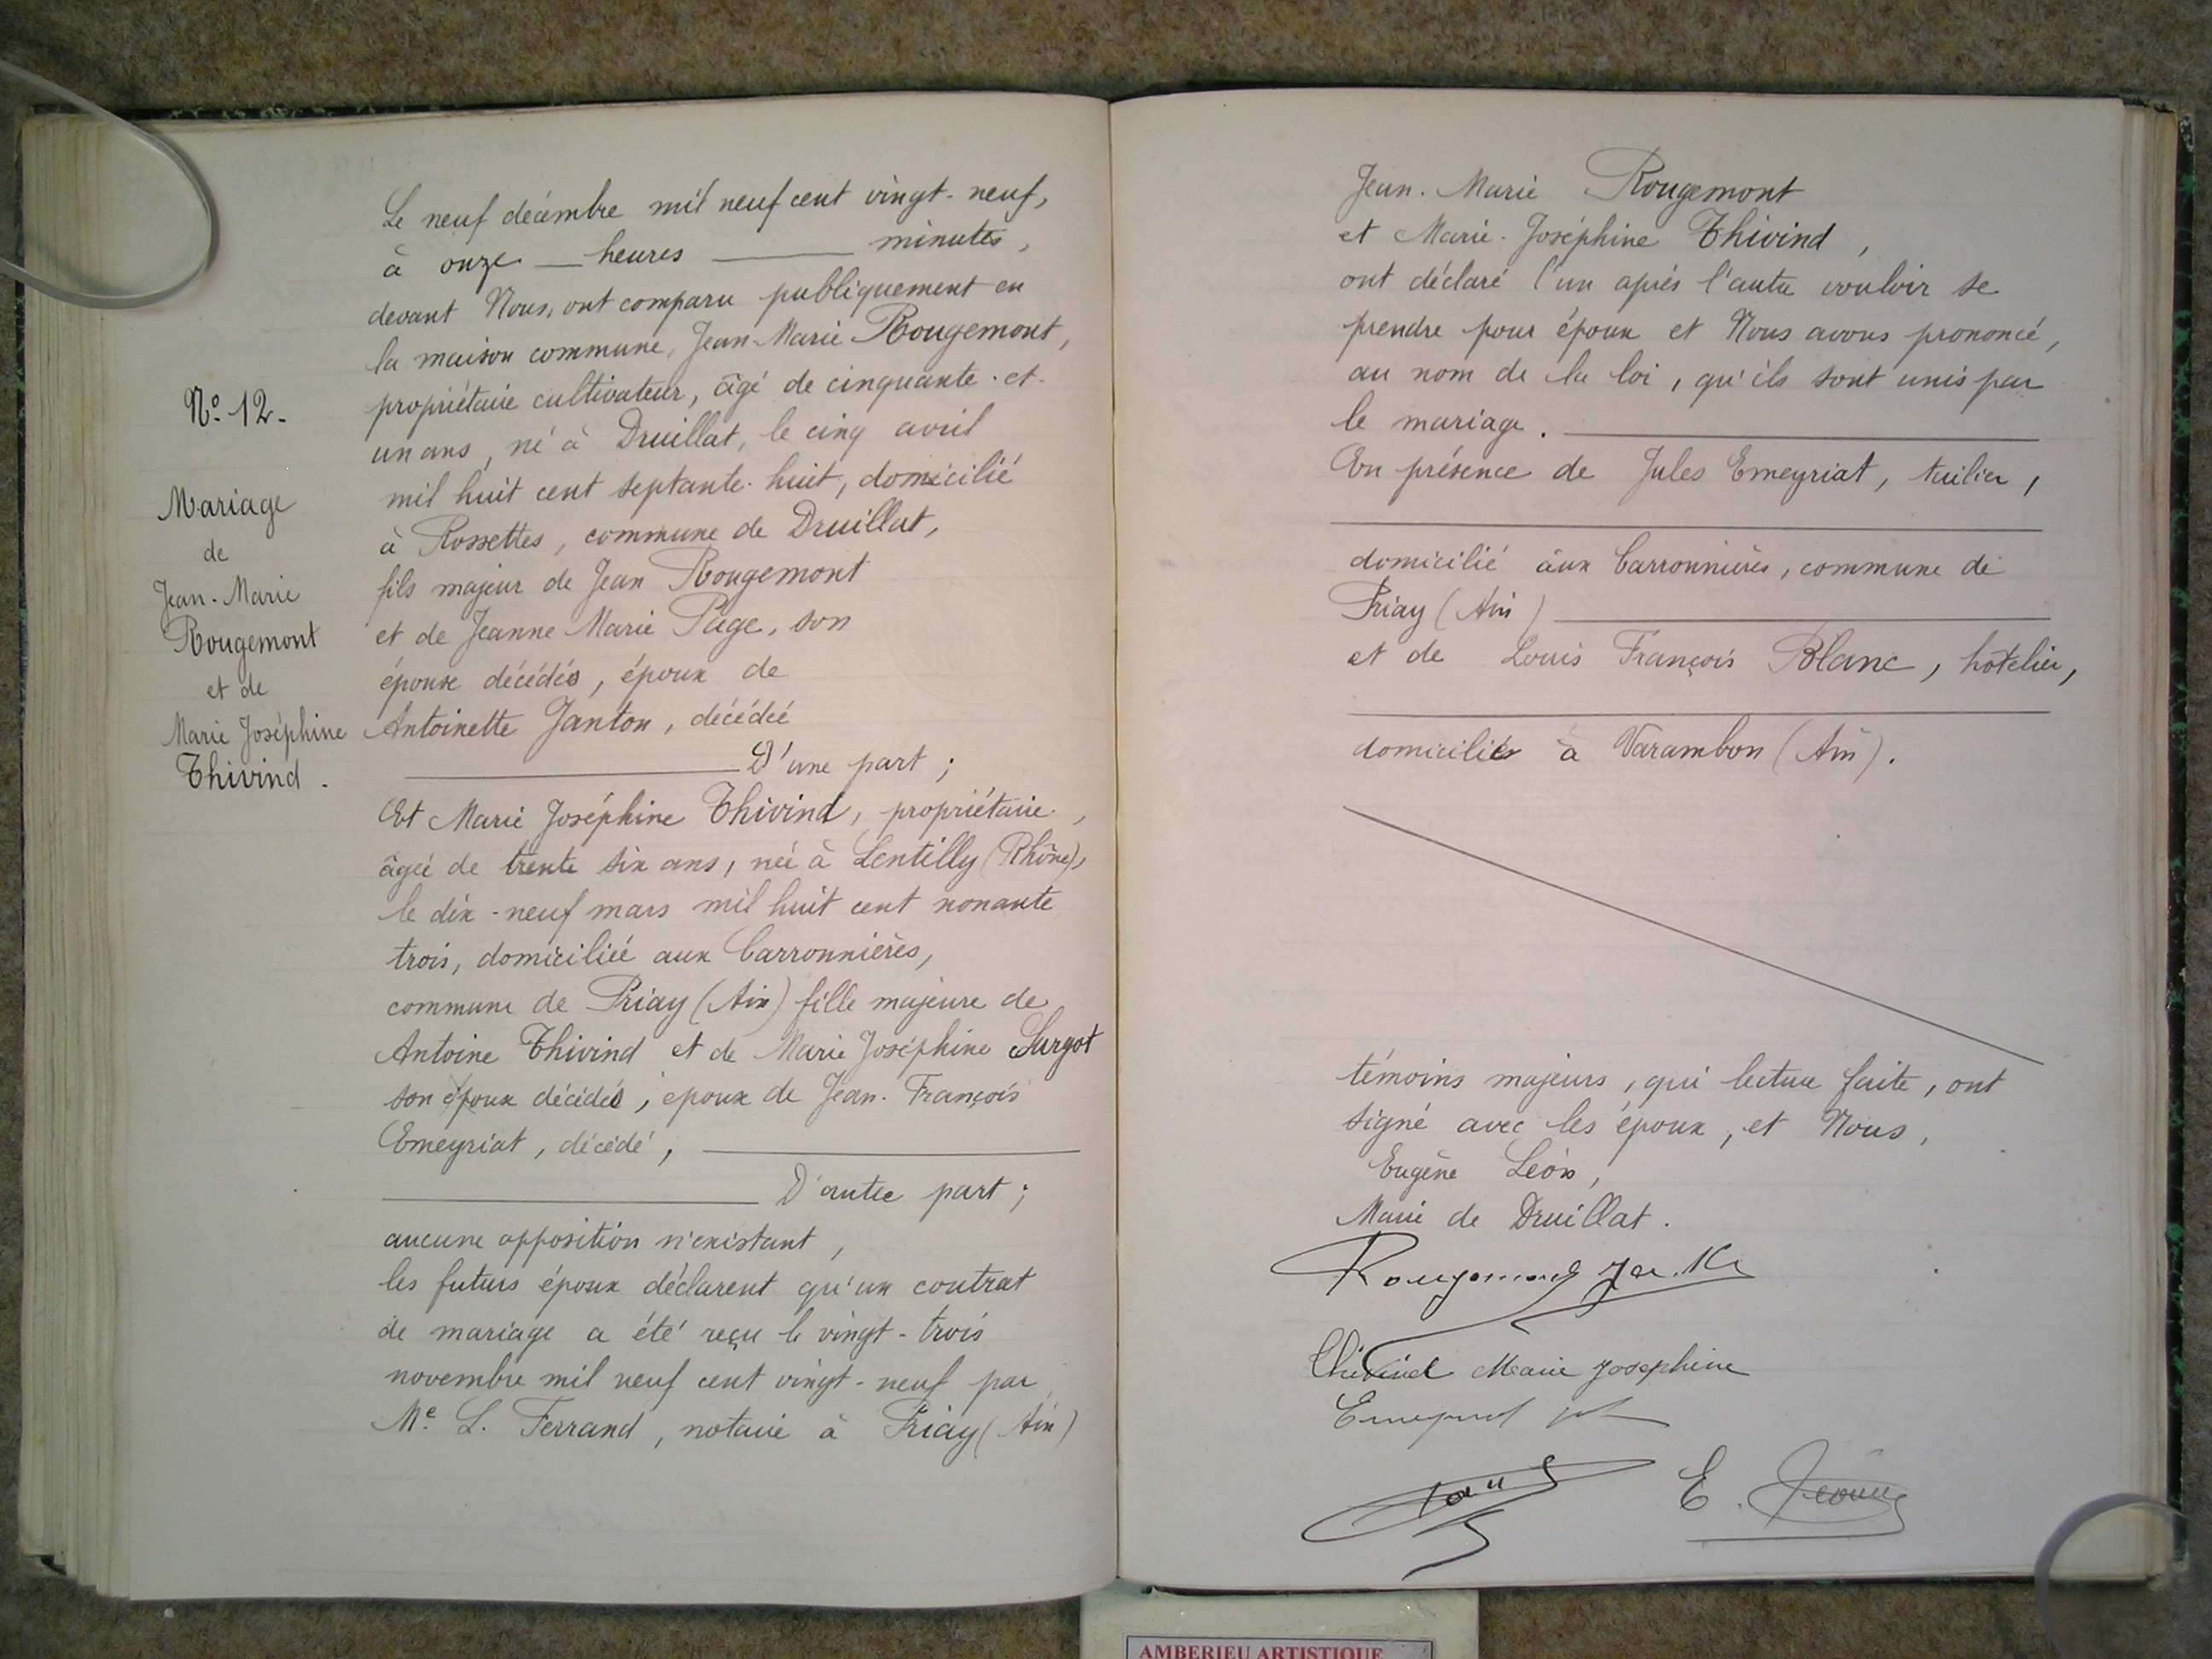 N° 12.
Mariage
de
Jean-Marie
Rougemont
et de
Marie Joséphine
Thivind.
Le neuf décembre mil neuf cent vingt-neuf,
à onze heures minutes,
devant Nous, ont comparu publiquement en
la maison commune, Jean-Marie Rougemont,
propriétaire cultivateur, âgé de cinquante-et-
un ans, né à Druillat, le cinq avril
mil huit cent septante-huit, domicilié
à Rossettes, commune de Druillat,
fils majeur de Jean Rougemont
et de Jeanne Marie Page, son
épouse décédés, époux de
Antoinette Janton, décédée
D'une part;
Et Marie Joséphine Thivind, propriétaire,
âgée de trente six ans, née à Lentilly (Rhône),
le dix-neuf mars mil huit cent nonante
trois, domiciliée aux Carronnières,
commune de Priay (Ain) fille majeure de
Antoine Thivind et de Marie Joséphine Surgot
son époux décédés, époux de Jean-François
Emeyriat, décédé,
D'autre part;
aucune opposition n'existant,
les futurs époux déclarent qu'un contrat
de mariage a été reçu le vingt-trois
novembre mil neuf cent vingt-neuf par
Me L. Ferrand, notaire à Priay (Ain)
Jean-Marie Rougemont
et Marie-Joséphine Thivind,
ont déclaré l'un après l'autre vouloir se
prendre pour époux et Nous avons prononcé,
au nom de la loi, qu'ils sont unis par
le mariage.
En présence de Jules Emeyriat, tuilier,
domicilié aux Carronnières, commune de
Priay (Ain)
et de Louis François Blanc, hôtelier,
domiciliés à Varambon (Ain).
témoins majeurs, qui lecture faite, ont
signé avec les époux, et Nous,
Eugène Léon,
Maire de Druillat.
Rougemont
Thivind Marie Joséphine
E.
AMBERIEU ARTISTIQUE